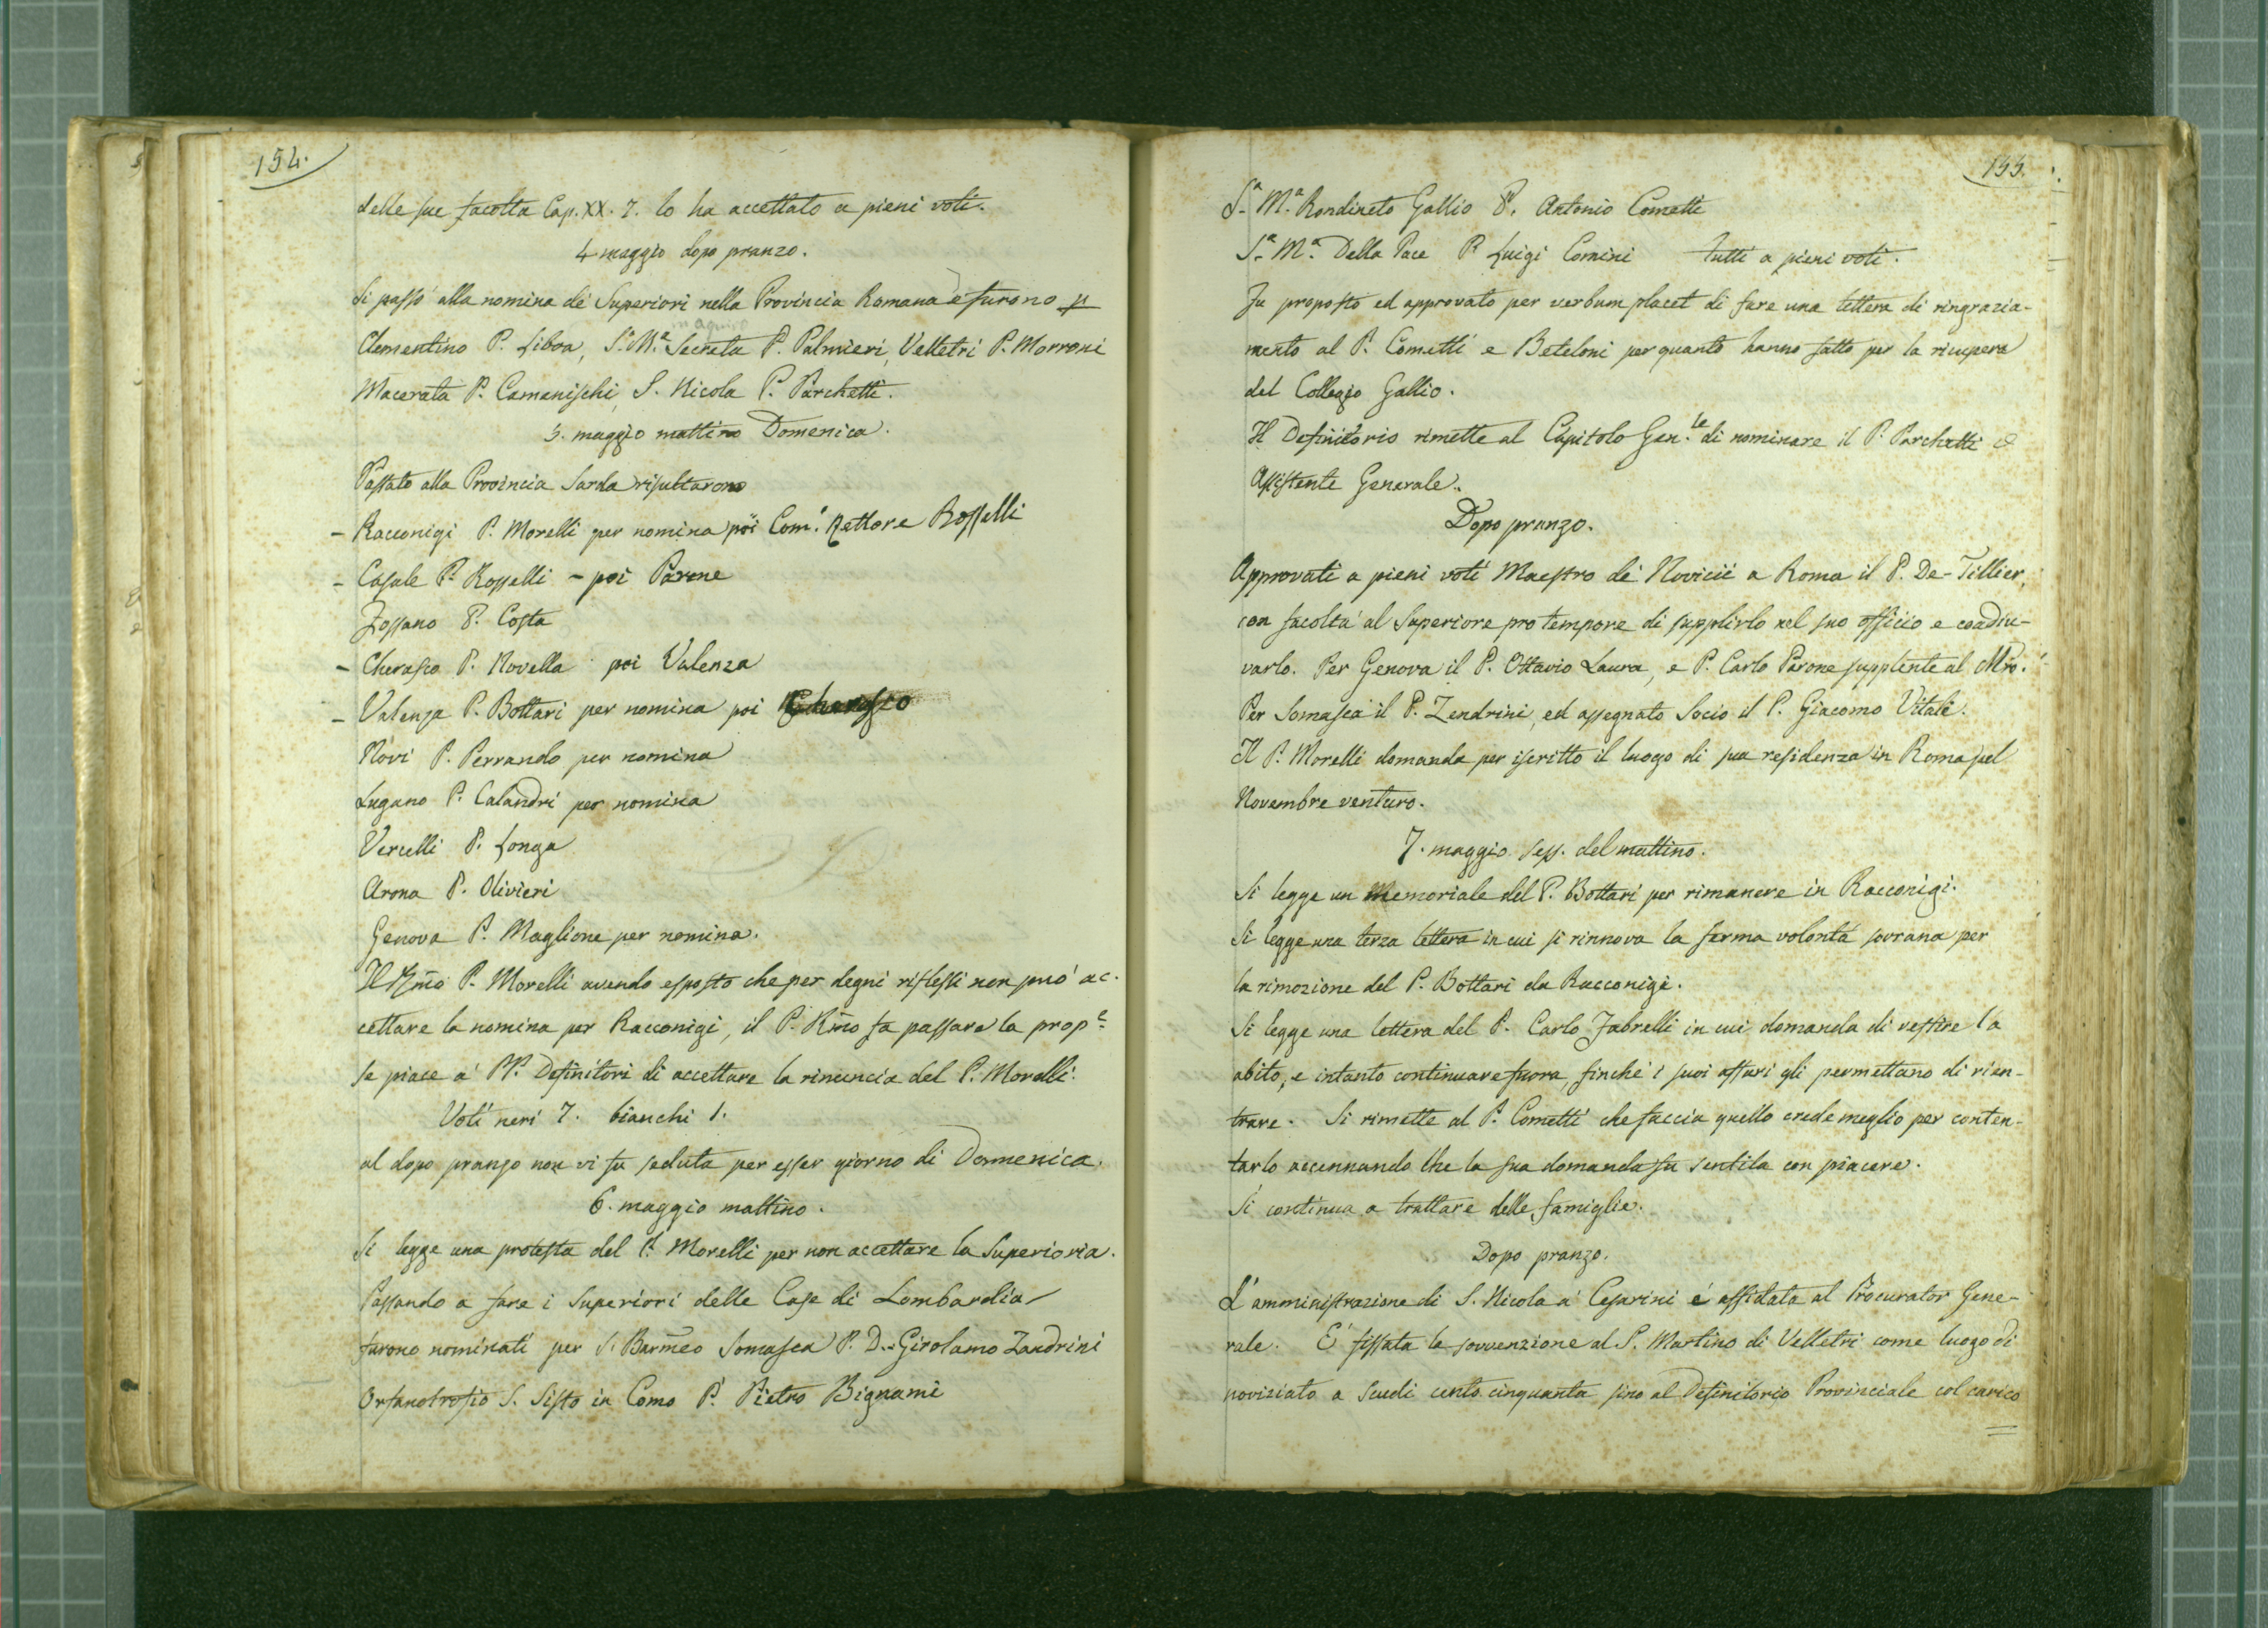 154.
delle sue facoltà Cap. XX. 7. lo ha accettato a pieni voti.
4 maggio dopo pranzo.
Si passò alla nomina de' Superiori nella Provincia Romana e furono p
Clementino P. Libva, S.ª M.ª Secreta P. Palmieri, Velletri P. Morroni
aquiro
Macerata P. Camanischi, S. Nicola P. Parchetti.
5. maggio mattino Domenica.
Passato alla Provincia Sarda risultarono
- Racconigi P. Morelli per nomina poi Com.' Rettore Rosselli
- Casale P. Rosselli - poi Parone
Fossano P. Costa
- Cherasco P. Novella poi Valenza
- Valenza P. Bottari per nomina poi Cherasco
Novi P. Perrando per nomina
Lugano P. Calandri per nomina
Vercelli P. Longa
Arona P. Olivieri
Genova P. Maglione per nomina.
Il Rm̃o P. Morelli avendo esposto che per degni riflessi non può ac-
cettare la nomina per Racconigi, il P. Rm̃o fa passare la prop.e
se piace a' PP. Definitori di accettare la rinuncia del P. Morelli.
Voti neri 7. bianchi 1.
al dopo pranzo non vi fu seduta per esser giorno di Domenica.
6. maggio mattino.
Si legge una protesta del P. Morelli per non accettare la Superioria.
Passando a fare i Superiori delle Case di Lombardia
furono nominati per S. Barm̃eo Somasca P. D. Girolamo Zandrini
Orfanotrofio S. Sisto in Como P. Pietro Bignami
155.
S.ª M.ª Rondineto Gallio P. Antonio Cometti
S.ª M.ª Della Pace P. Luigi Comini tutti a pieni voti.
Fu proposto ed approvato per verbum placet di fare una lettera di ringrazia-
mento al P. Cometti e Beteloni per quanto hanno fatto per la ricupera
del Collegio Gallio.
Il Definitorio rimette al Capitolo Gen.le di nominare il P. Parchetti
Assistente Generale.
Dopo pranzo.
Approvati a pieni voti Maestro de' Novicii a Roma il P. De-Tillier,
con facoltà al Superiore pro tempore di supplirlo nel suo officio e coadiu-
varlo. Per Genova il P. Ottavio Laura, e P. Carlo Parone supplente al Mr̃o.
Per Somasca il P. Zendrini, ed assegnato Socio il P. Giacomo Vitali.
Il P. Morelli domanda per iscritto il luogo di sua residenza in Roma pel
Novembre venturo.
7. maggio sess. del mattino.
Si legge un Memoriale del P. Bottari per rimanere in Racconigi.
Si legge una terza lettera in cui si rinnova la ferma volontà sovrana per
la rimozione del P. Bottari da Racconigi.
Si legge una lettera del P. Carlo Fabrelli in cui domanda di vestire l'a
abito, e intanto continuare fuora, finchè i suoi affari gli permettano di rien-
trare. Si rimette al P. Cometti che faccia quello crede meglio per conten-
tarlo accennando che la sua domanda fu sentita con piacere.
Si continua a trattare delle famiglie.
Dopo pranzo.
L'amministrazione di S. Nicola a' Cesarini è affidata al Procurator Gene-
rale. E' fissata la sovvenzione al S. Martino di Velletri come luogo di
noviziato a Scudi cento cinquanta sino al Definitorio Provinciale col carico